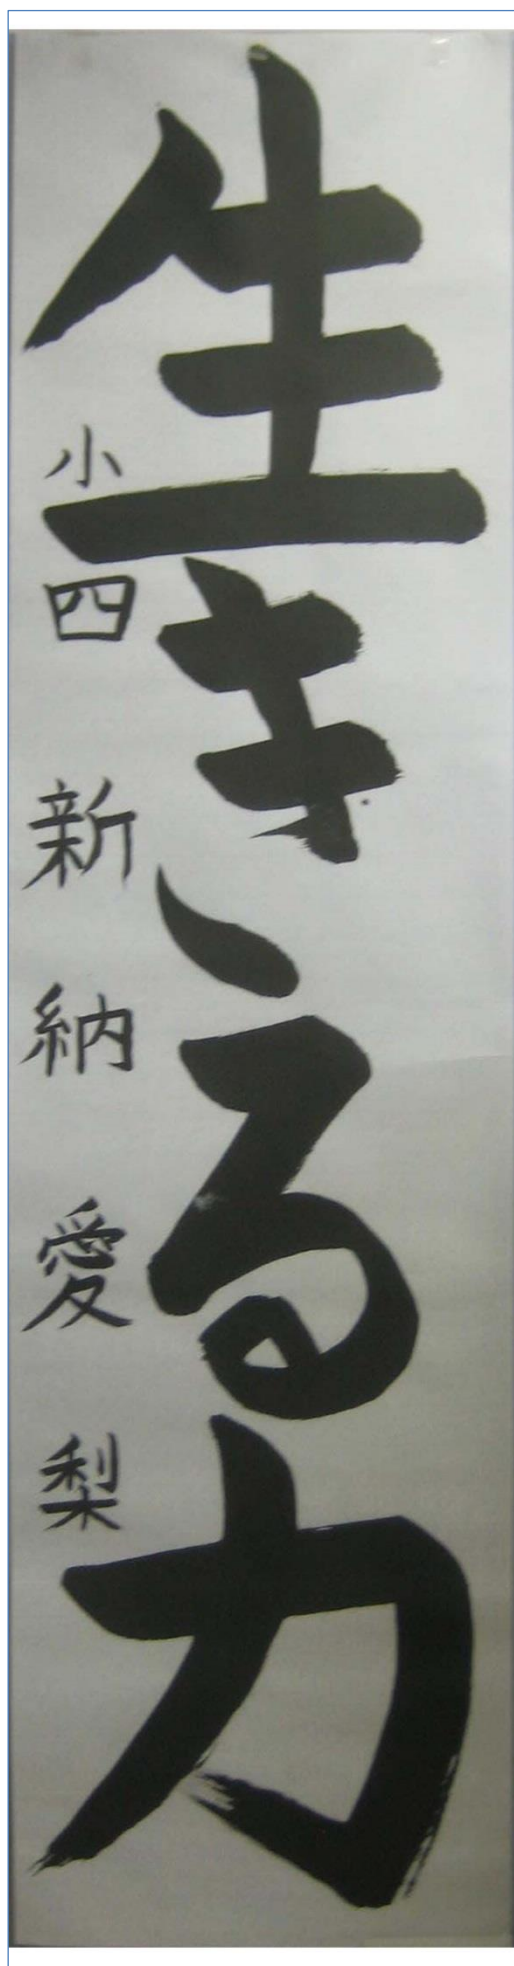 生きる力
小四 新納愛梨